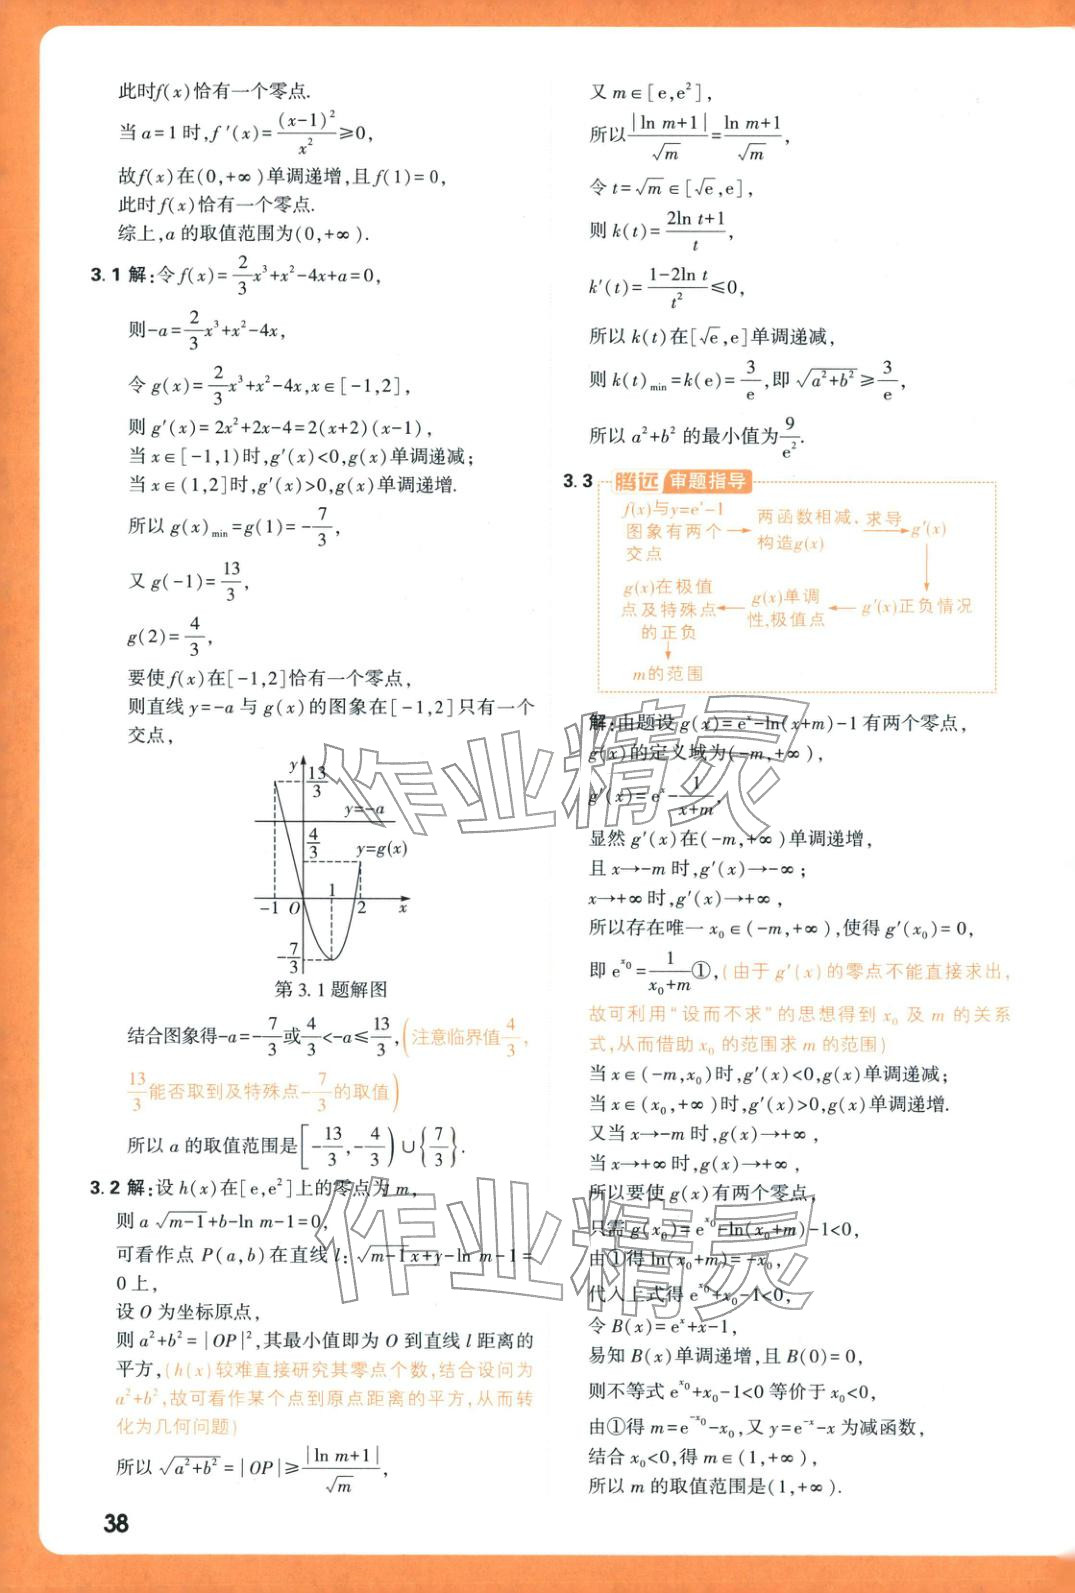 此时f(x)恰有一个零点.
当a=1时,f′(x)=(x-1)²/x²≥0,
故f(x)在(0,+∞)单调递增,且f(1)=0,
此时f(x)恰有一个零点.
综上,a的取值范围为(0,+∞).
3.1 解:令f(x)=2/3x³+x²-4x+a=0,
则-a=2/3x³+x²-4x,
令g(x)=2/3x³+x²-4x,x∈[-1,2],
则g′(x)=2x²+2x-4=2(x+2)(x-1),
当x∈[-1,1)时,g′(x)<0,g(x)单调递减;
当x∈(1,2]时,g′(x)>0,g(x)单调递增.
所以g(x)min=g(1)=-7/3,
又g(-1)=13/3,
g(2)=4/3,
要使f(x)在[-1,2]恰有一个零点,
则直线y=-a与g(x)的图象在[-1,2]只有一个
交点,
y
13/3
y=-a
4/3
y=g(x)
1
-1 O 2 x
-7/3
第3.1题解图
结合图象得-a=-7/3或4/3<-a≤13/3,(注意临界值4/3,
13/3能否取到及特殊点-7/3的取值)
所以a的取值范围是[-13/3,-4/3)∪{7/3}.
3.2 解:设h(x)在[e,e²]上的零点为m,
则a√(m-1)+b-ln m-1=0,
可看作点P(a,b)在直线l:√(m-1)x+y-ln m-1=
0上,
设O为坐标原点,
则a²+b²=|OP|²,其最小值即为O到直线l距离的
平方,(h(x)较难直接研究其零点个数,结合设问为
a²+b²,故可看作某个点到原点距离的平方,从而转
化为几何问题)
所以√(a²+b²)=|OP|≥|ln m+1|/√m,
38
又m∈[e,e²],
所以|ln m+1|/√m=ln m+1/√m,
令t=√m∈[√e,e],
则k(t)=2ln t+1/t,
k′(t)=1-2ln t/t²≤0,
所以k(t)在[√e,e]单调递减,
则k(t)min=k(e)=3/e,即√(a²+b²)≥3/e,
所以a²+b²的最小值为9/e².
3.3 腾远 审题指导
f(x)与y=eˣ-1
图象有两个
交点
两函数相减、
构造g(x)
求导
g′(x)
g′(x)正负情况
g(x)单调
性,极值点
g(x)在极值
点及特殊点
的正负
m的范围
解:由题设g(x)=eˣ-ln(x+m)-1有两个零点,
g(x)的定义域为(-m,+∞),
g′(x)=eˣ-1/(x+m),
显然g′(x)在(-m,+∞)单调递增,
且x→-m时,g′(x)→-∞;
x→+∞时,g′(x)→+∞,
所以存在唯一x₀∈(-m,+∞),使得g′(x₀)=0,
即e^x₀=1/(x₀+m)①,(由于g′(x)的零点不能直接求出,
故可利用“设而不求”的思想得到x₀及m的关系
式,从而借助x₀的范围求m的范围)
当x∈(-m,x₀)时,g′(x)<0,g(x)单调递减;
当x∈(x₀,+∞)时,g′(x)>0,g(x)单调递增.
又当x→-m时,g(x)→+∞,
当x→+∞时,g(x)→+∞,
所以要使g(x)有两个零点,
只需g(x₀)=e^x₀-ln(x₀+m)-1<0,
由①得ln(x₀+m)=-x₀,
代入上式得e^x₀+x₀-1<0,
令B(x)=eˣ+x-1,
易知B(x)单调递增,且B(0)=0,
则不等式e^x₀+x₀-1<0等价于x₀<0,
由①得m=e^-x₀-x₀,又y=e^-x-x为减函数,
结合x₀<0,得m∈(1,+∞),
所以m的取值范围是(1,+∞).
作业精灵
作业精灵